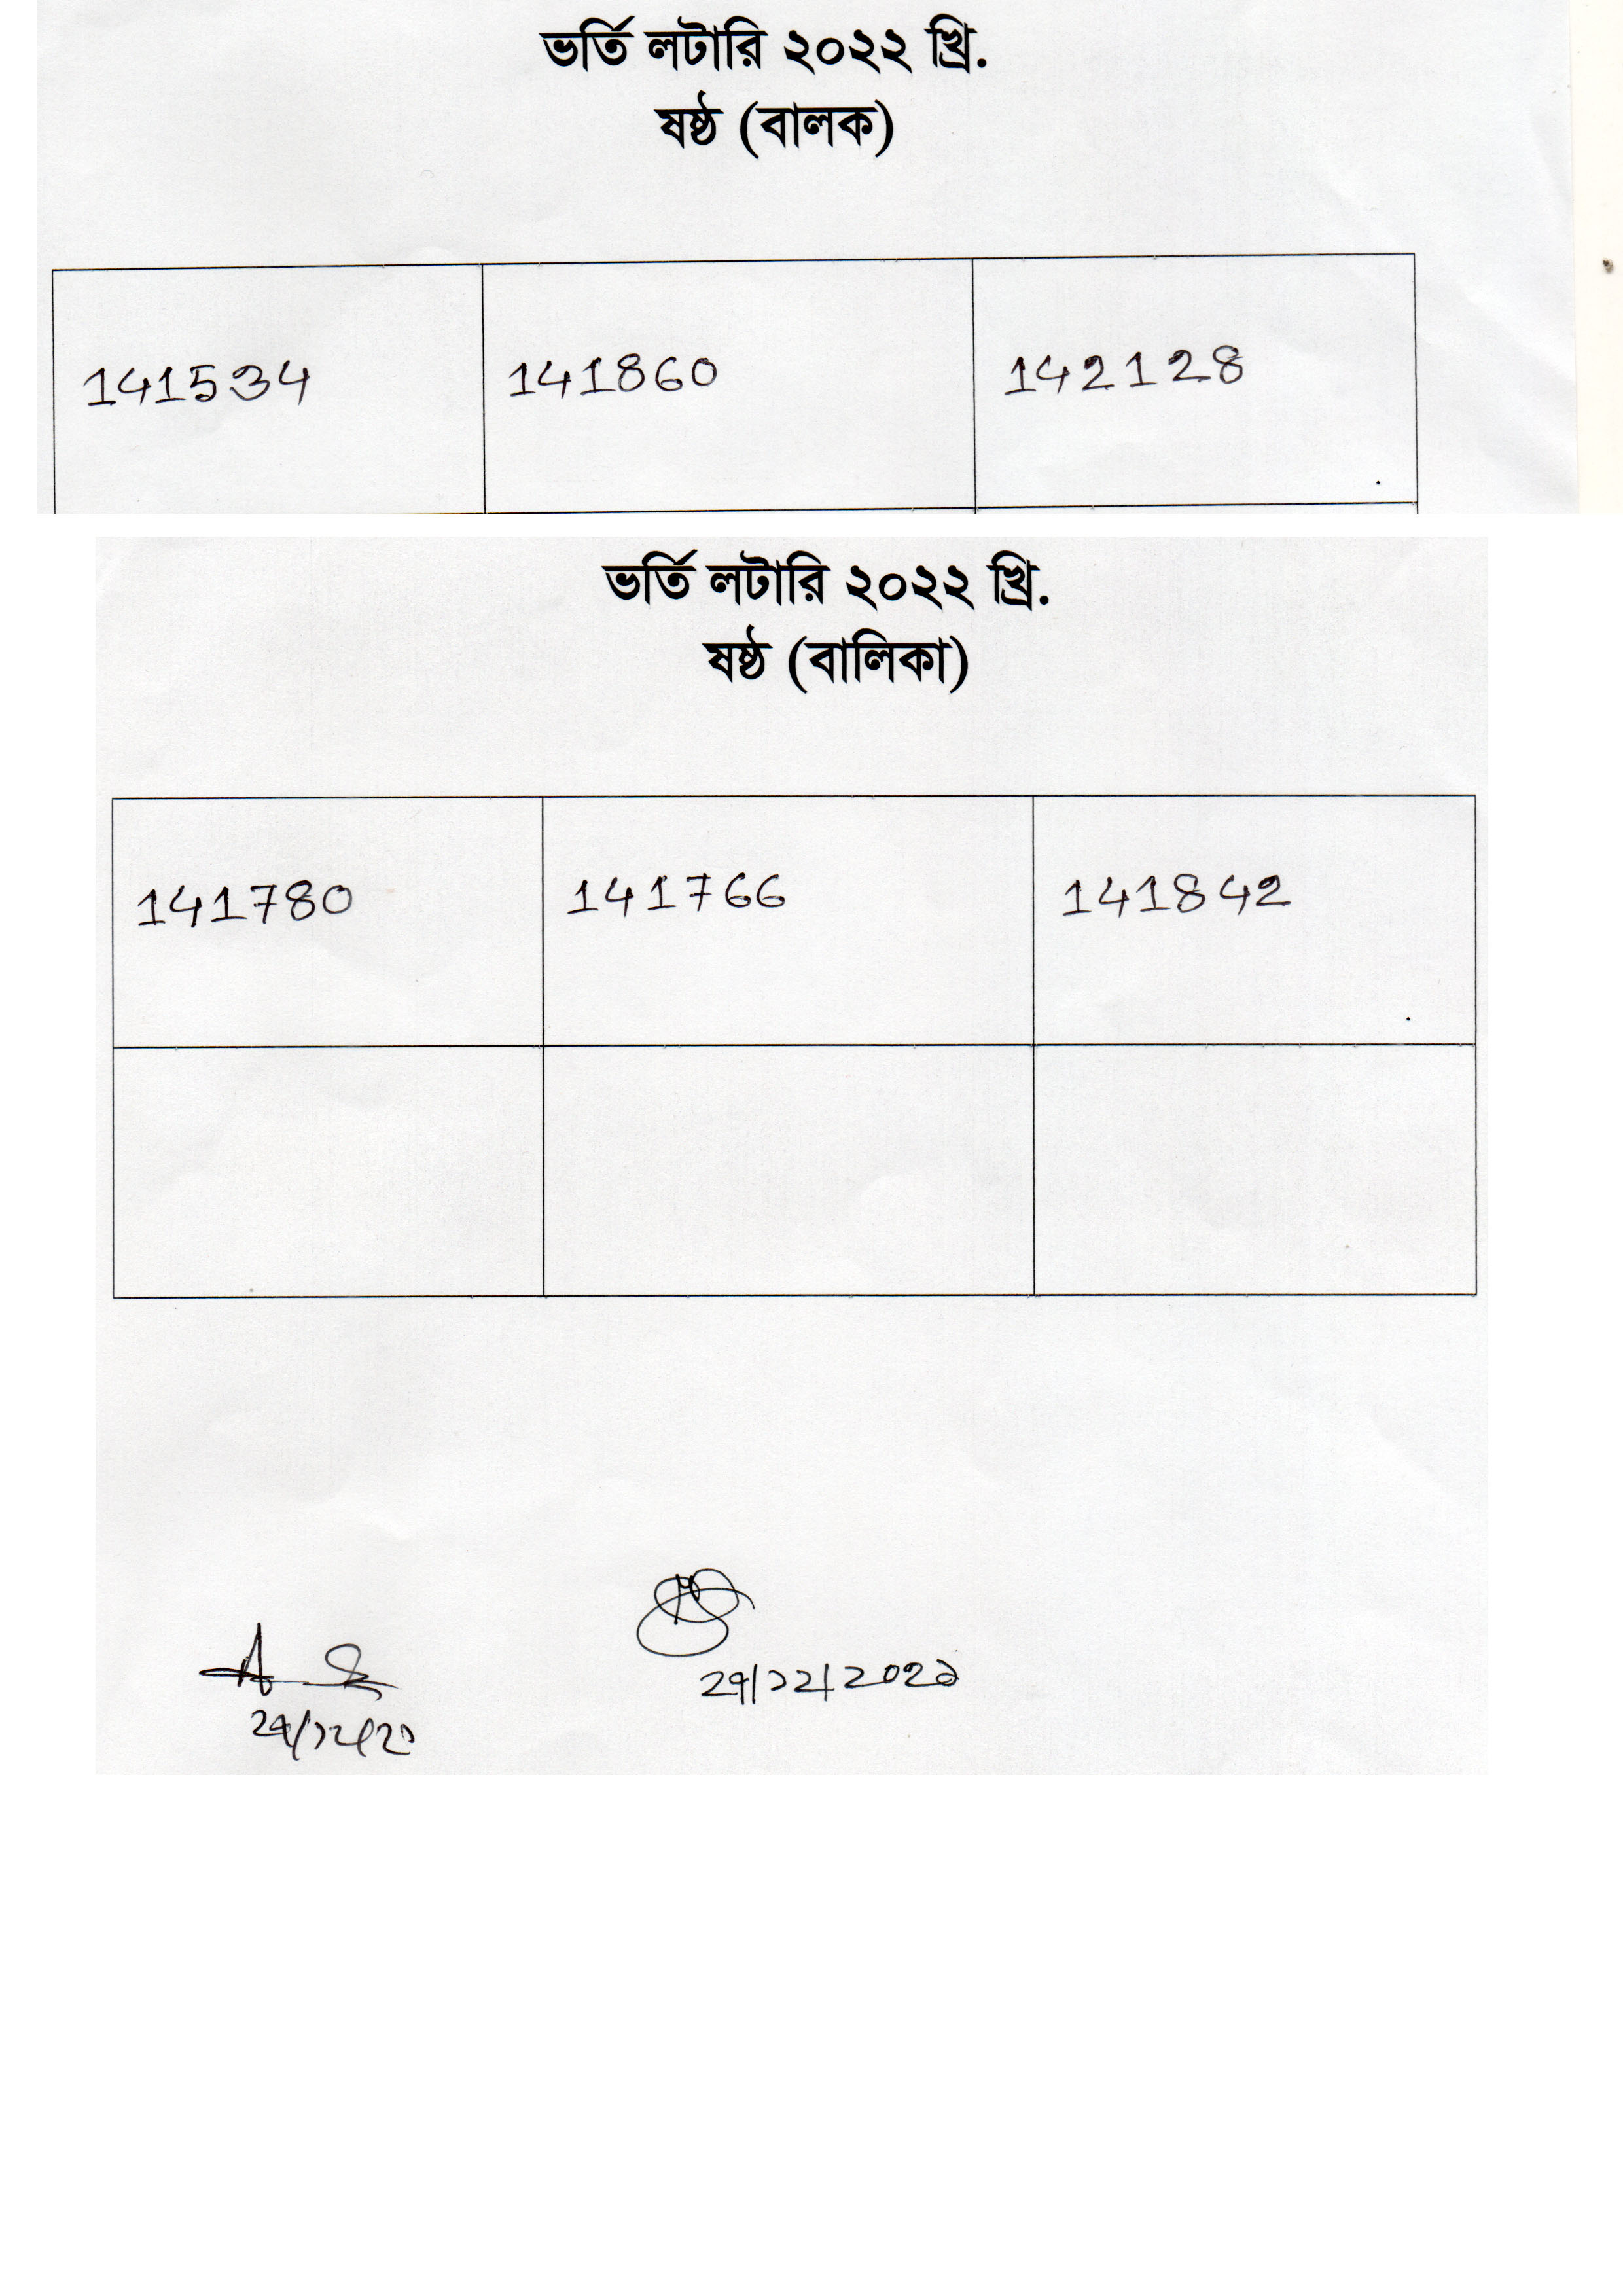 ভর্তি লটারি ২০২২ খ্রি.
ষষ্ঠ (বালক)
141534 141860 142128
ভর্তি লটারি ২০২২ খ্রি.
ষষ্ঠ (বালিকা)
141780 141766 141842